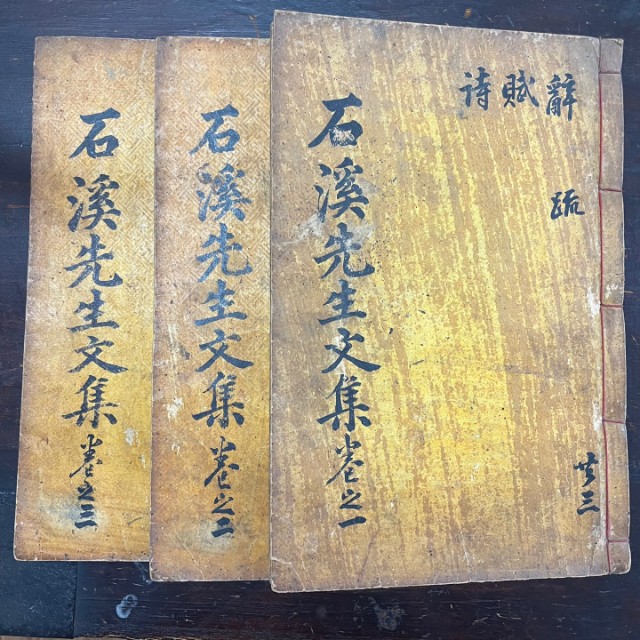 辭賦詩
疏
共三
石溪先生文集卷之一
石溪先生文集卷之二
石溪先生文集卷之三